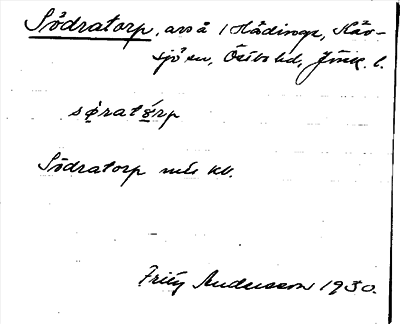 Södratorp, avs å 1 Hådinge, Håv-
sjö sn, Östbo hd, Jönk. l.
sǿratǿrp
Södratorp nils kv.
Fritz Andersson 1930.